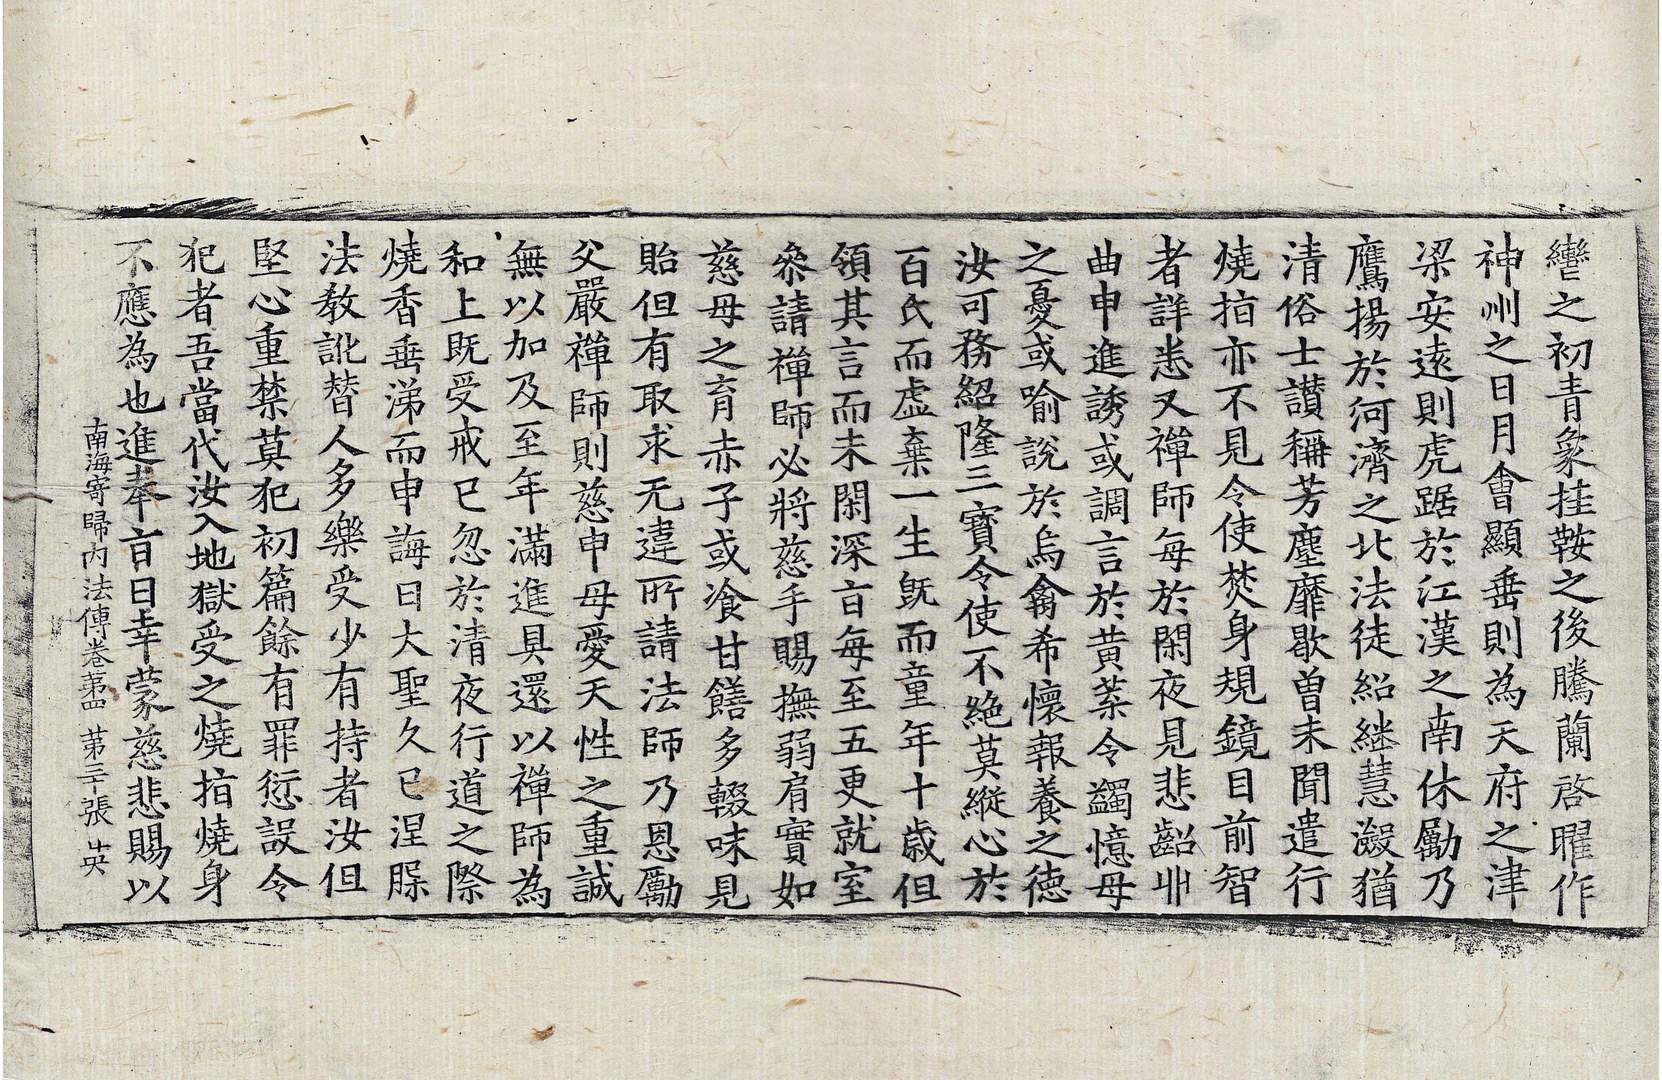 轡之初青象挂鞍之後騰蘭啓曜作
神州之日月會顯垂則為天府之津
梁安遠則虎踞於江漢之南休勵乃
鷹揚於河濟之北法徒紹継慧瀲猶
清俗士讃稱芳塵靡歇曽未聞遣行
燒指亦不見令使焚身規鏡目前智
者詳悉又禪師每於閑夜見悲齠丱
曲申進誘或調言於黃葉令蠲憶母
之憂或喻說於烏禽希懷報養之德
汝可務紹隆三寶令使不絕莫縱心於
百氏而虛棄一生既而童年十歲但
領其言而未閑深㫖每至五更就室
叅請禪師必將慈手賜撫弱肩實如
慈母之育赤子或飡甘饍多輟味見
貽但有取求无違所請法師乃恩勵
父嚴禪師則慈申母愛天性之重誠
無以加及至年滿進具還以禪師為
和上既受戒已忽於清夜行道之際
燒香垂涕而申誨曰大聖久已涅脲
法教訛替人多樂受少有持者汝但
堅心重禁莫犯初篇餘有罪愆設令
犯者吾當代汝入地獄受之燒指燒身
不應為也進奉㫖曰幸蒙慈悲賜以
南海寄歸內法傳卷苐四 苐三十張 英